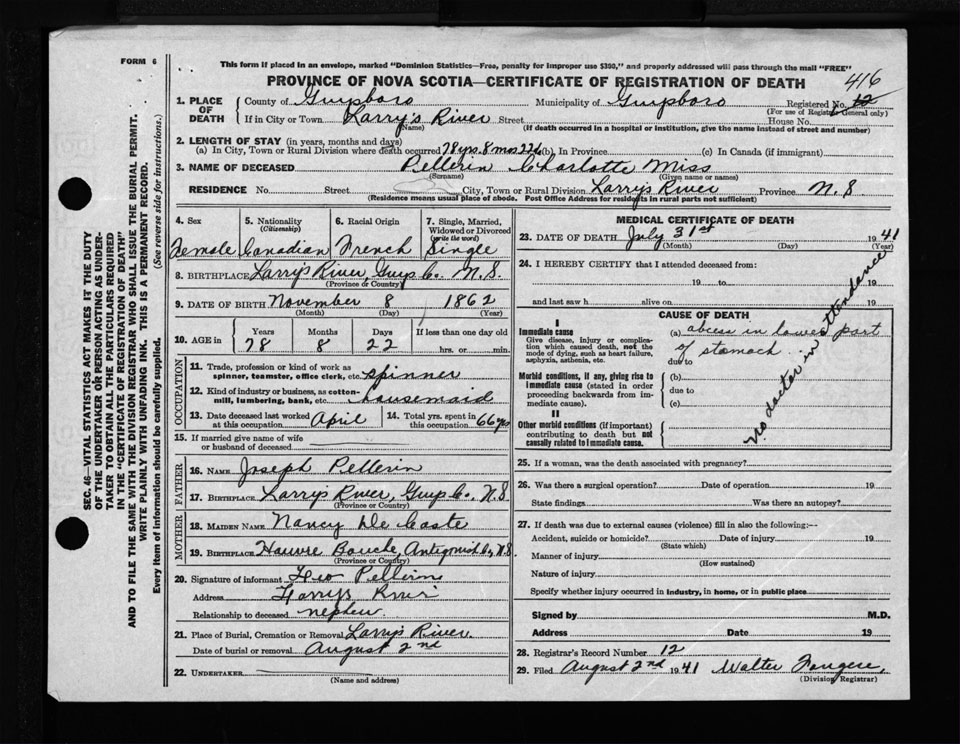 FORM 6
This form if placed in an envelope, marked "Dominion Statistics—Free, penalty for improper use $300," and properly addressed will pass through the mail "FREE"
PROVINCE OF NOVA SCOTIA—CERTIFICATE OF REGISTRATION OF DEATH
416
1. PLACE OF DEATH
County of Guysboro Municipality of Guysboro Registered No. 12
(For use of Registrar General only)
If in City or Town Larry's River Street House No.
(Name) (If death occurred in a hospital or institution, give the name instead of street and number)
2. LENGTH OF STAY (in years, months and days)
(a) In City, Town or Rural Division where death occurred 78 yrs. 8 mos 22 d (b), In Province (c) In Canada (if immigrant)
3. NAME OF DECEASED Pellerin Charlotte Miss
(Surname) (Given name or names)
RESIDENCE No. Street City, Town or Rural Division Larry's River Province N.S
(Residence means usual place of abode. Post Office Address for residents in rural parts not sufficient)
4. Sex
Female
5. Nationality
(Citizenship)
Canadian
6. Racial Origin
French
7. Single, Married,
Widowed or Divorced
(write the word)
Single
8. BIRTHPLACE Larry's River, Guys Co. N.S
(Province or Country)
9. DATE OF BIRTH November 8 1862
(Month) (Day) (Year)
10. AGE in
Years Months Days If less than one day old
78 8 22 hrs. or min.
OCCUPATION
11. Trade, profession or kind of work as
spinner, teamster, office clerk, etc. spinner
12. Kind of industry or business, as cotton-
mill, lumbering, bank, etc. housemaid
13. Date deceased last worked
at this occupation April
14. Total yrs. spent in
this occupation 66 yrs
15. If married give name of wife
or husband of deceased
FATHER
16. NAME Joseph Pellerin
17. BIRTHPLACE Larry's River, Guys Co., N.S
(Province or Country)
MOTHER
18. MAIDEN NAME Nancy De Coste
19. BIRTHPLACE Havre Bouche, Antigonish Co, N.S.
(Province or Country)
20. Signature of informant Leo Pellerin
Address Larrys River
Relationship to deceased nephew
21. Place of Burial, Cremation or Removal Larry's River.
Date of burial or removal August 2nd
22. UNDERTAKER
(Name and address)
MEDICAL CERTIFICATE OF DEATH
23. DATE OF DEATH July 31st 1941
(Month) (Day) (Year)
24. I HEREBY CERTIFY that I attended deceased from:
19 to 19
and last saw h alive on 19
CAUSE OF DEATH
I
Immediate cause
Give disease, injury or compli-
cation which caused death, not the
mode of dying, such as heart failure,
asphyxia, asthenia, etc.
(a) abcess in lower part
of stomach
due to
Morbid conditions, if any, giving rise to
immediate cause (stated in order
proceeding backwards from im-
mediate cause).
(b)
due to
(c)
II
Other morbid conditions (if important)
contributing to death but not
causally related to immediate cause.
No doctor in attendance
25. If a woman, was the death associated with pregnancy?
26. Was there a surgical operation? Date of operation 19
State findings Was there an autopsy?
27. If death was due to external causes (violence) fill in also the following:--
Accident, suicide or homicide? Date of injury 19
(State which)
Manner of injury
(How sustained)
Nature of injury
Specify whether injury occurred in industry, in home, or in public place
Signed by M.D.
Address Date 19
28. Registrar's Record Number 12
29. Filed August 2nd 1941 Walter Fougere,
(Division Registrar)
SEC. 46— VITAL STATISTICS ACT MAKES IT THE DUTY
OF THE UNDERTAKER OR PERSON ACTING AS UNDER-
TAKER TO OBTAIN ALL THE PARTICULARS REQUIRED
IN THE "CERTIFICATE OF REGISTRATION OF DEATH"
AND TO FILE THE SAME WITH THE DIVISION REGISTRAR WHO SHALL ISSUE THE BURIAL PERMIT.
WRITE PLAINLY WITH UNFADING INK. THIS IS A PERMANENT RECORD.
Every item of information should be carefully supplied. (See reverse side for instructions.)